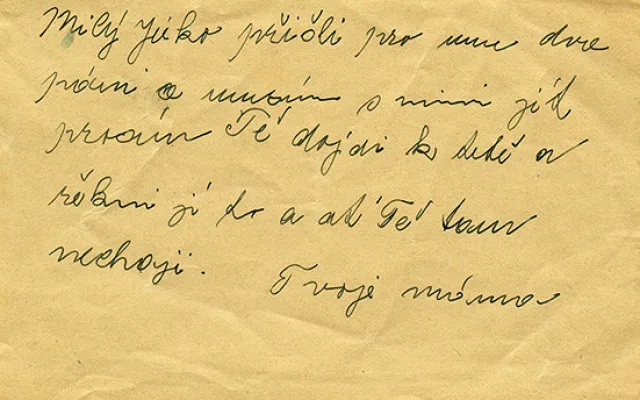 Milý Júko přišli pro mne dve
páni a musím s nimi jít
prosím Tě dojdi k tetě a
řekni jí to a ať Tě tam
nechají.
Tvoje máma